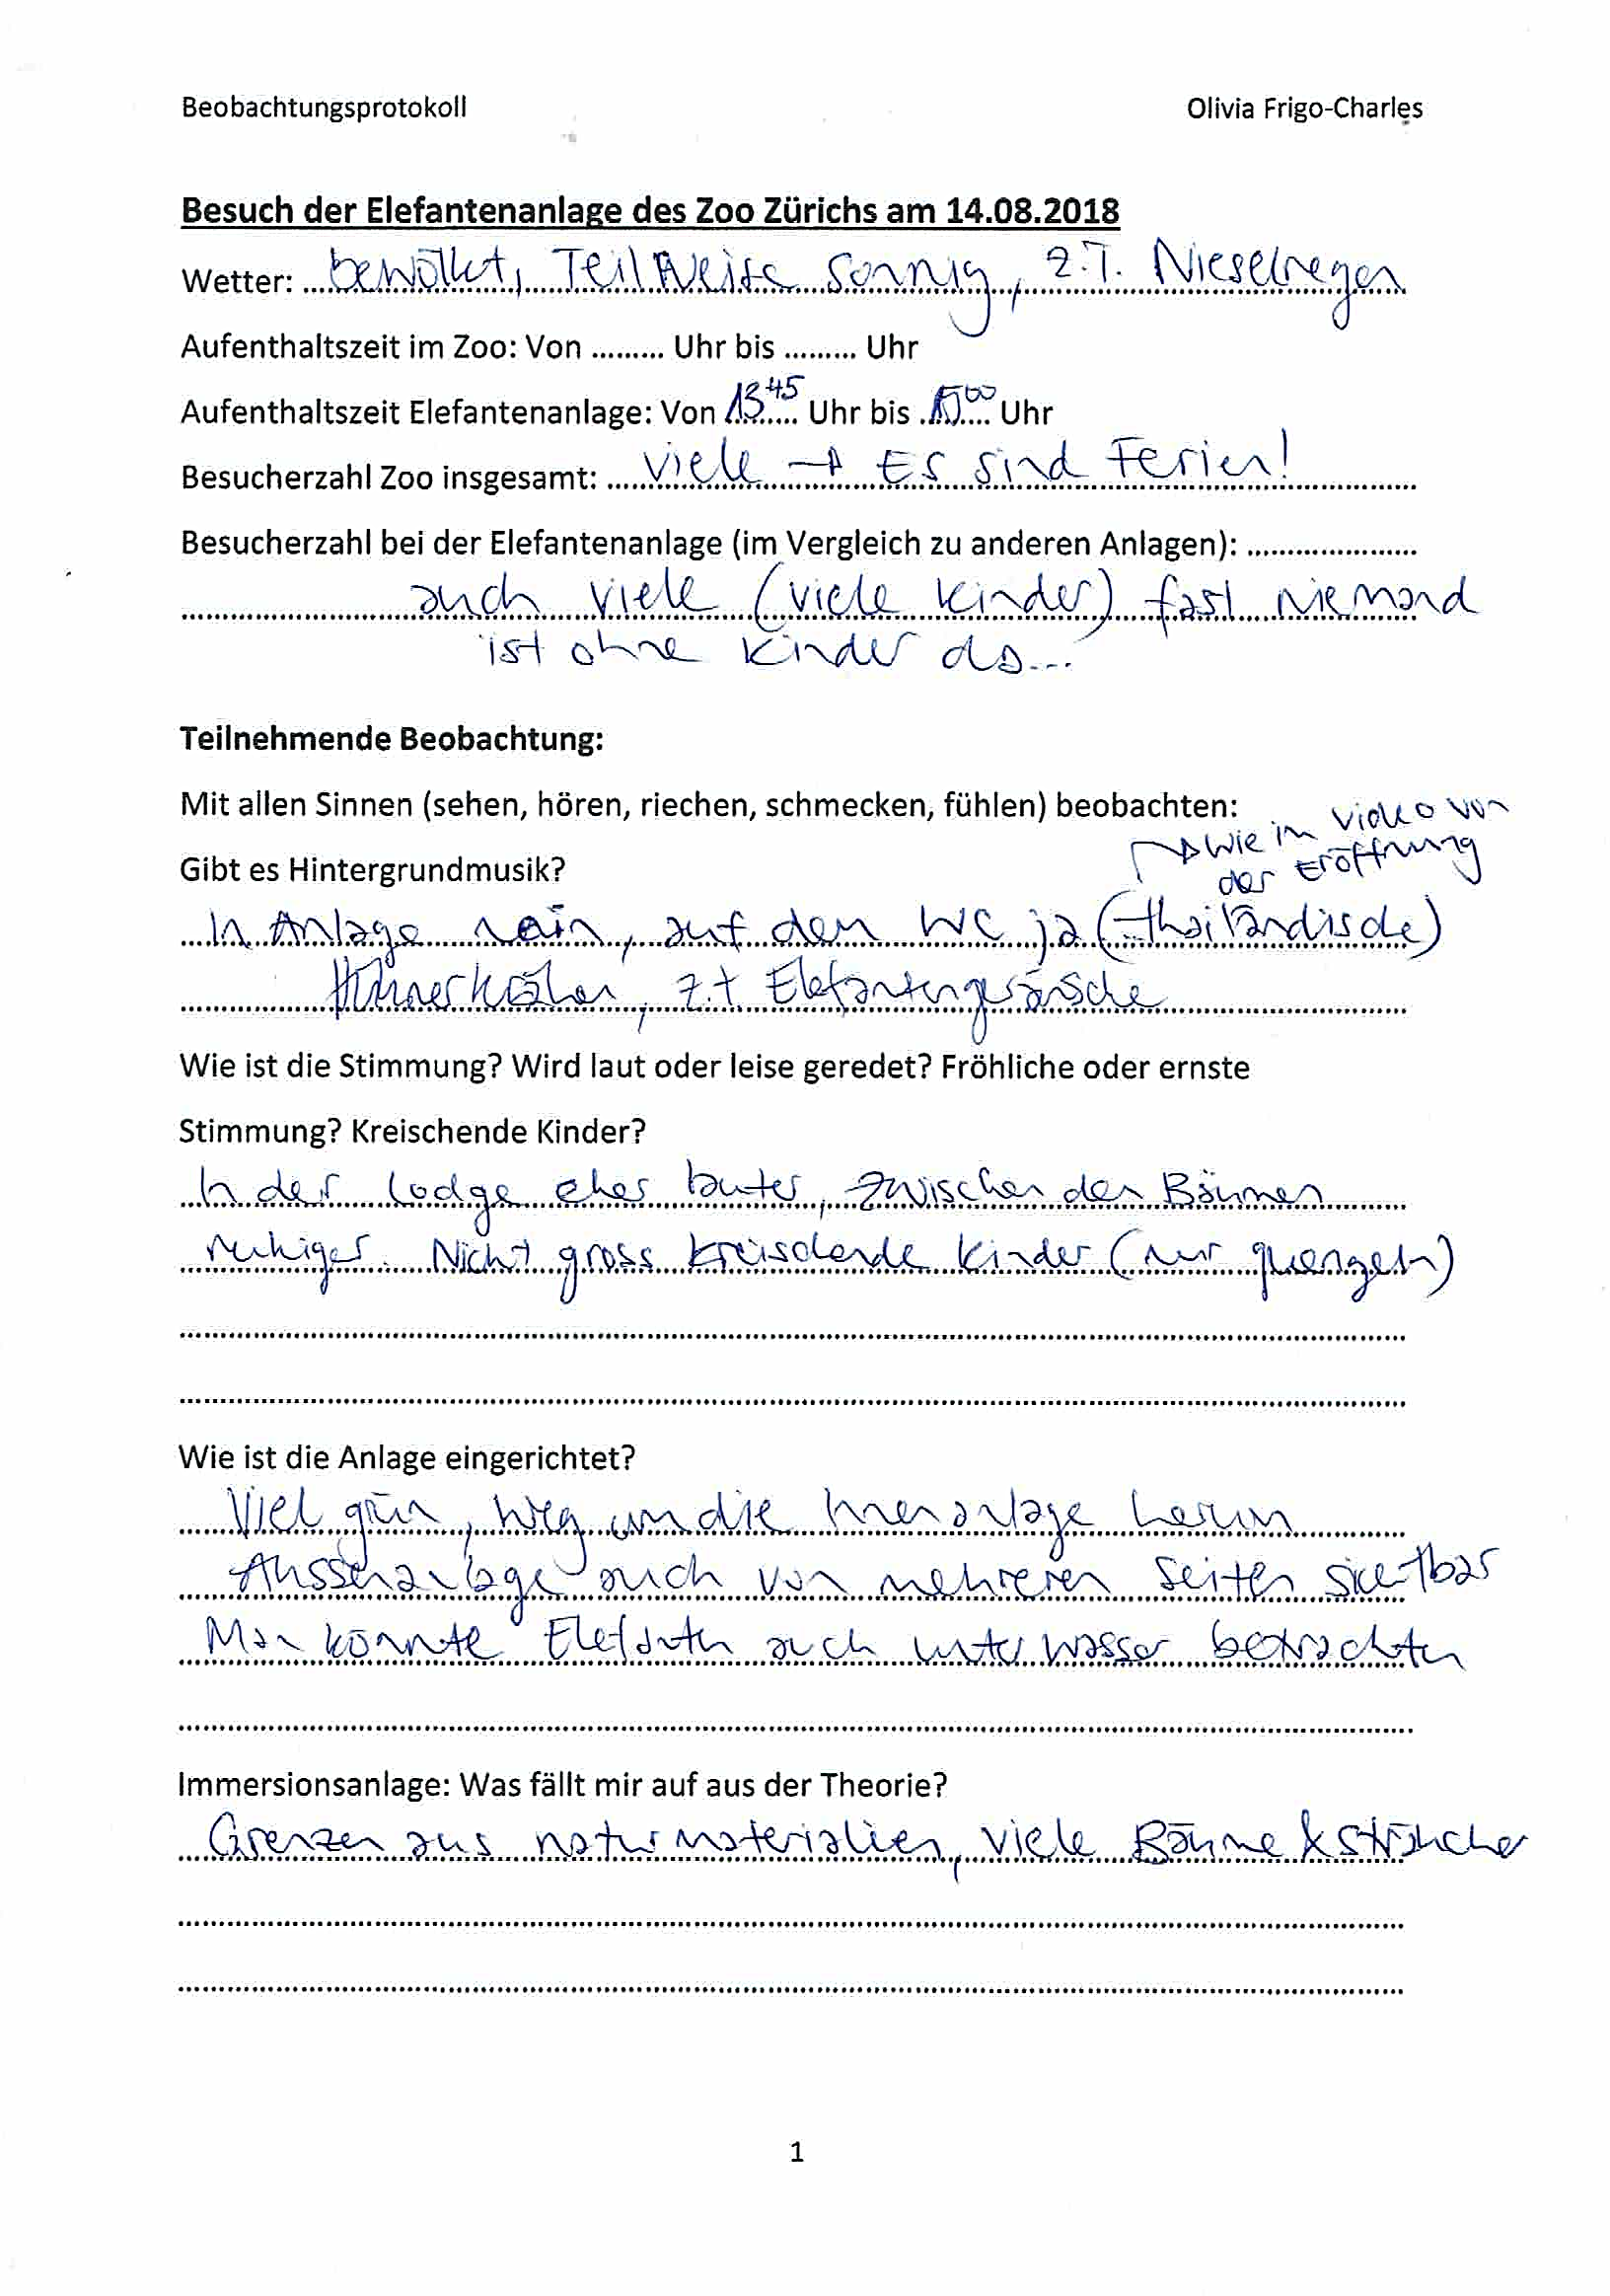 Beobachtungsprotokoll Olivia Frigo-Charles
Besuch der Elefantenanlage des Zoo Zürichs am 14.08.2018
Wetter: bewölkt, Teilweise sonnig, z.T. Nieselregen
Aufenthaltszeit im Zoo: Von ......... Uhr bis ......... Uhr
Aufenthaltszeit Elefantenanlage: Von 13 45 Uhr bis 00 Uhr
Besucherzahl Zoo insgesamt: viele → Es sind Ferien!
Besucherzahl bei der Elefantenanlage (im Vergleich zu anderen Anlagen): .....................
auch viele (viele Kinder) fast niemand
ist ohne Kinder da...
Teilnehmende Beobachtung:
Mit allen Sinnen (sehen, hören, riechen, schmecken, fühlen) beobachten:
→ wie im Video von
der Eröffnung
Gibt es Hintergrundmusik?
In Anlage nein, auf dem WC ja (thailändische)
Hühnerkrähen, z.t Elefantengeräusche
Wie ist die Stimmung? Wird laut oder leise geredet? Fröhliche oder ernste
Stimmung? Kreischende Kinder?
In der Lodge eher lauter, zwischen den Bäumen
ruhiger. Nicht gross kreischende Kinder (nur quengeln)
Wie ist die Anlage eingerichtet?
Viel grün, Weg um die Innenanlage herum
Aussenanlage auch von mehreren Seiten sichtbar
Man könnte Elefanten auch unter Wasser betrachten
Immersionsanlage: Was fällt mir auf aus der Theorie?
Grenzen aus naturmaterialien, viele Bäume & Sträucher
1